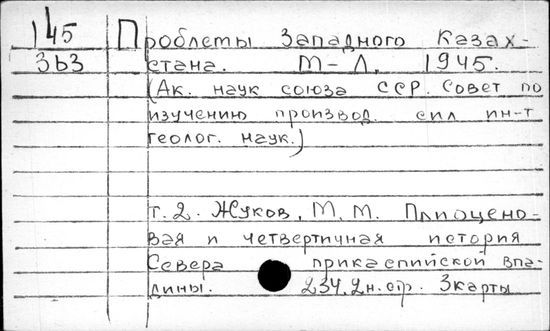 145 Проблемы Западного Казах-
363 стана. М-Л, 1945.
(Ак. наук союза ССР. Совет по
изучению производ. сил ин-т
геолог. наук.)
т. 2. Жуков, М. М. Плиоцено-
вая и четвертичная история
Севера прикаспийской впа-
дины. 234, 2н. стр. 3карты